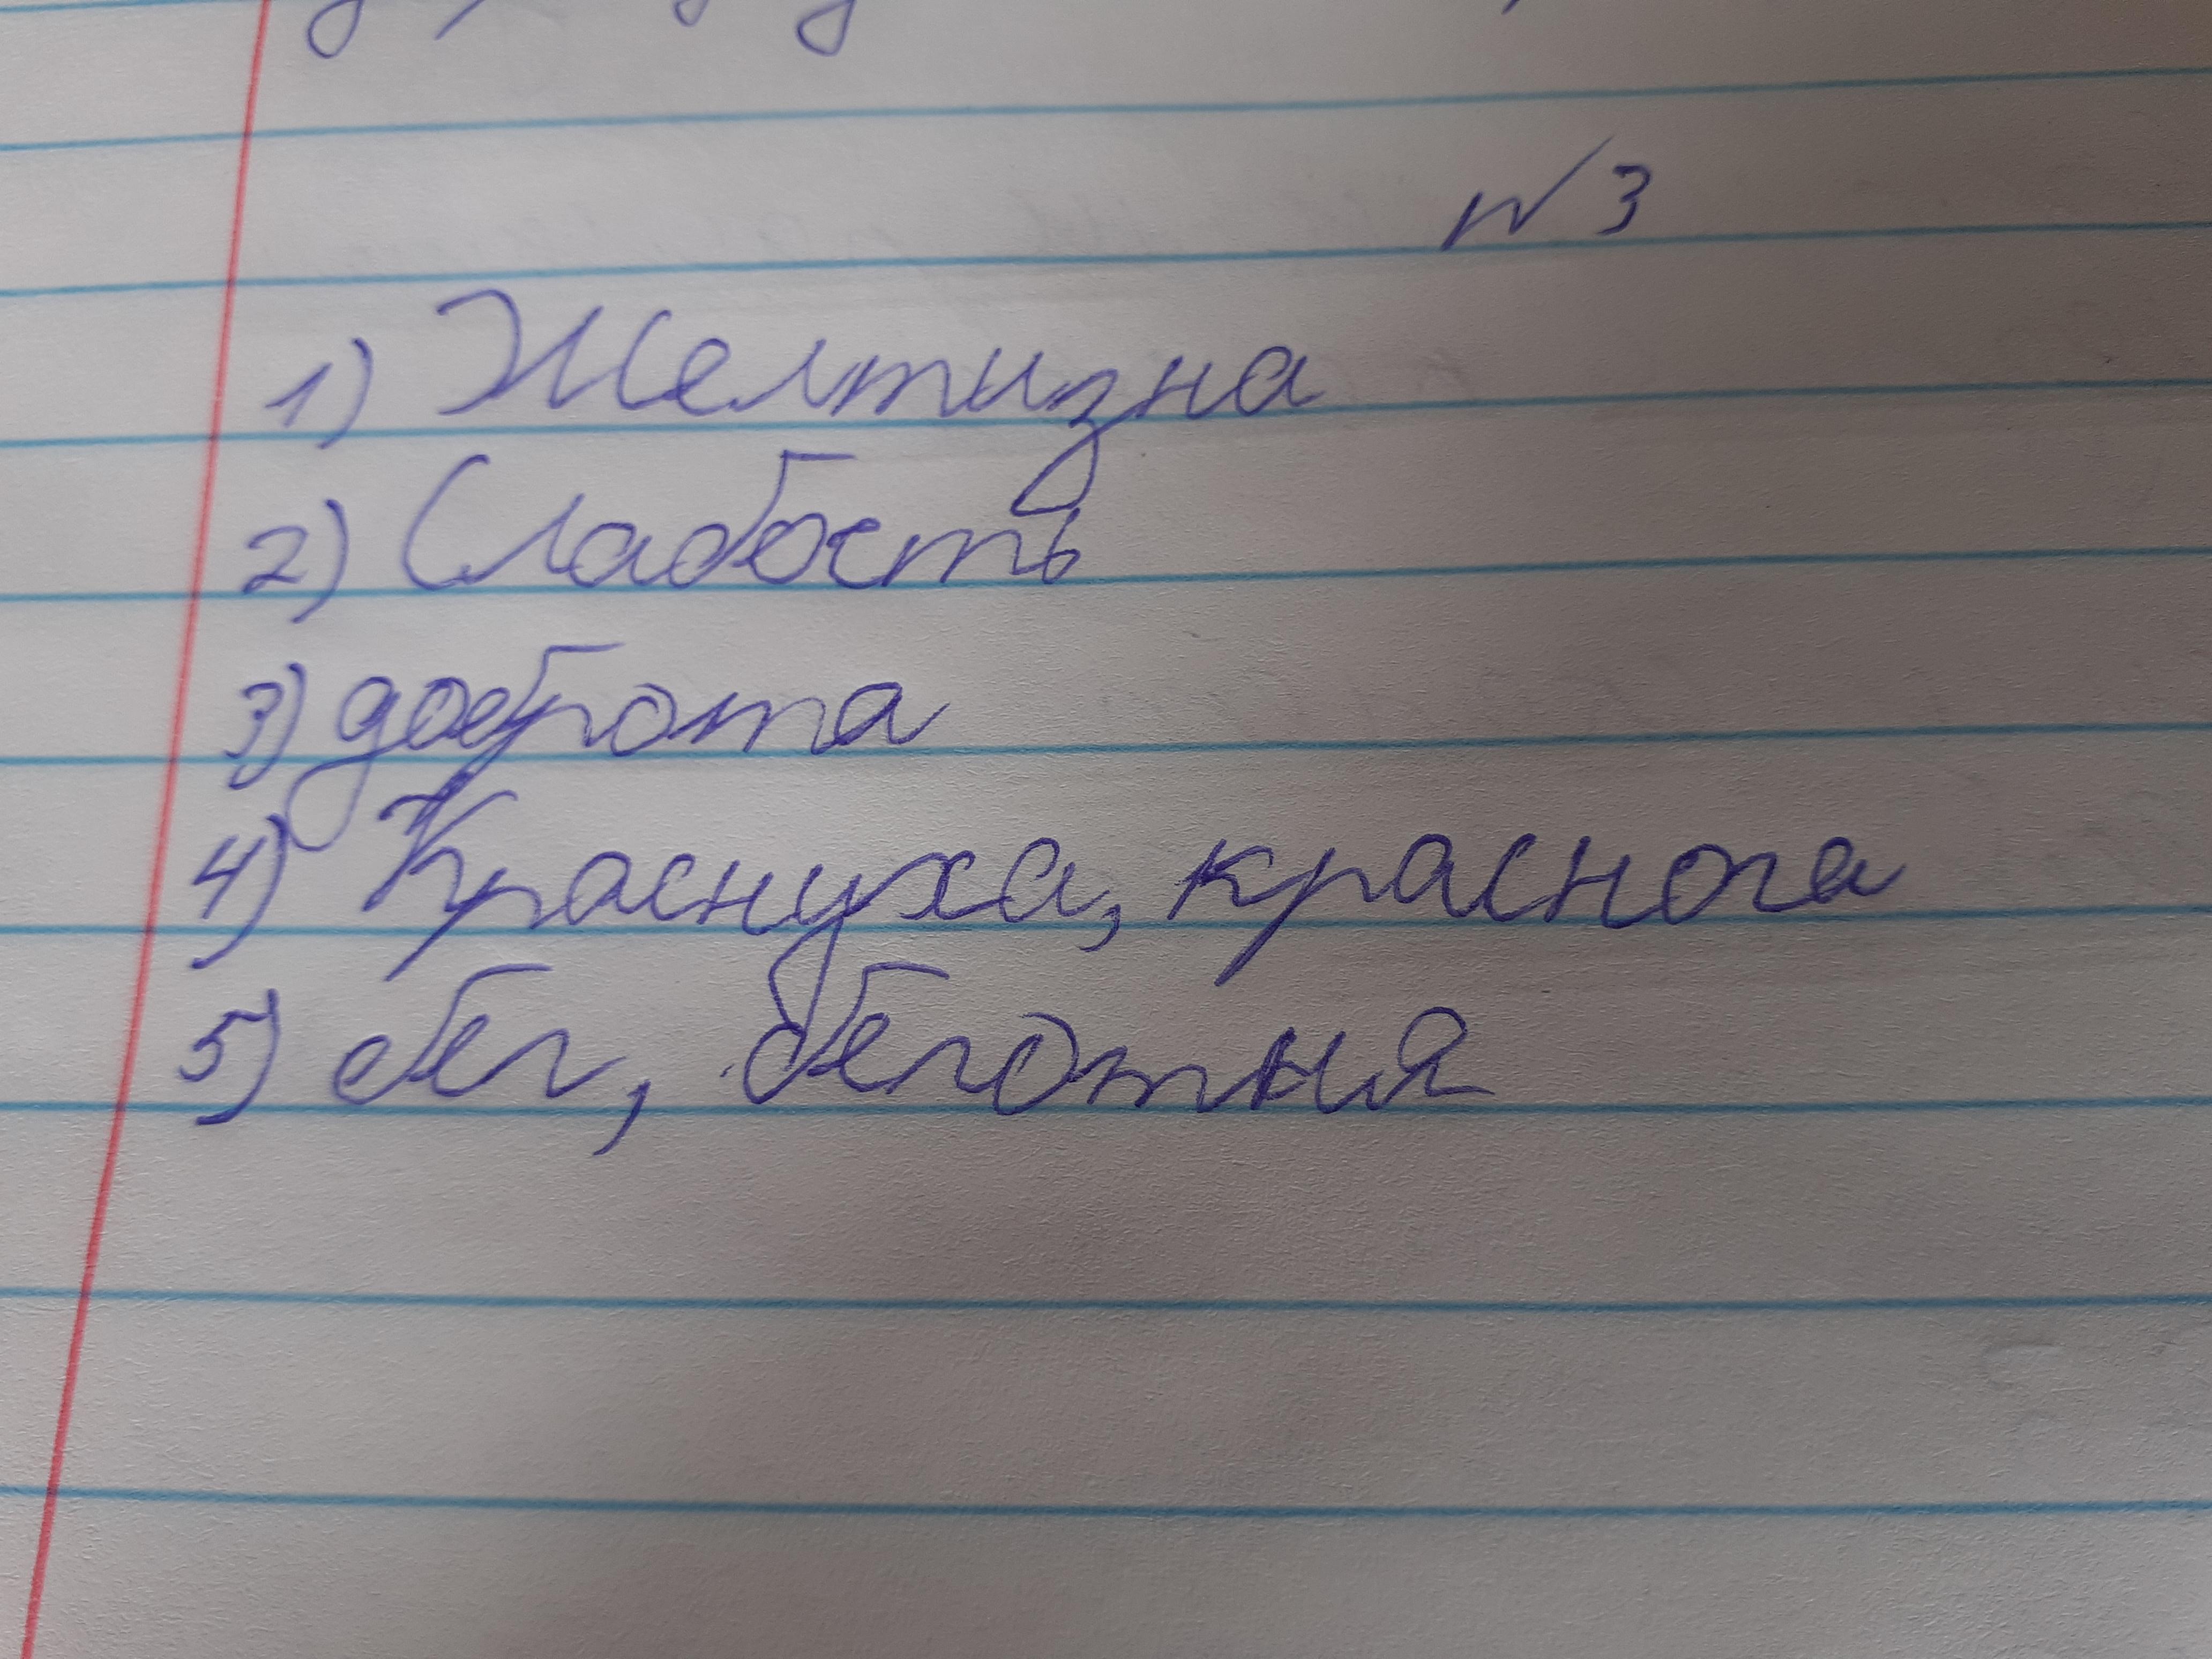 №3
1) Желтизна
2) Слабость
3) доброта
4) Краснуха, краснота
5) бег, беготня